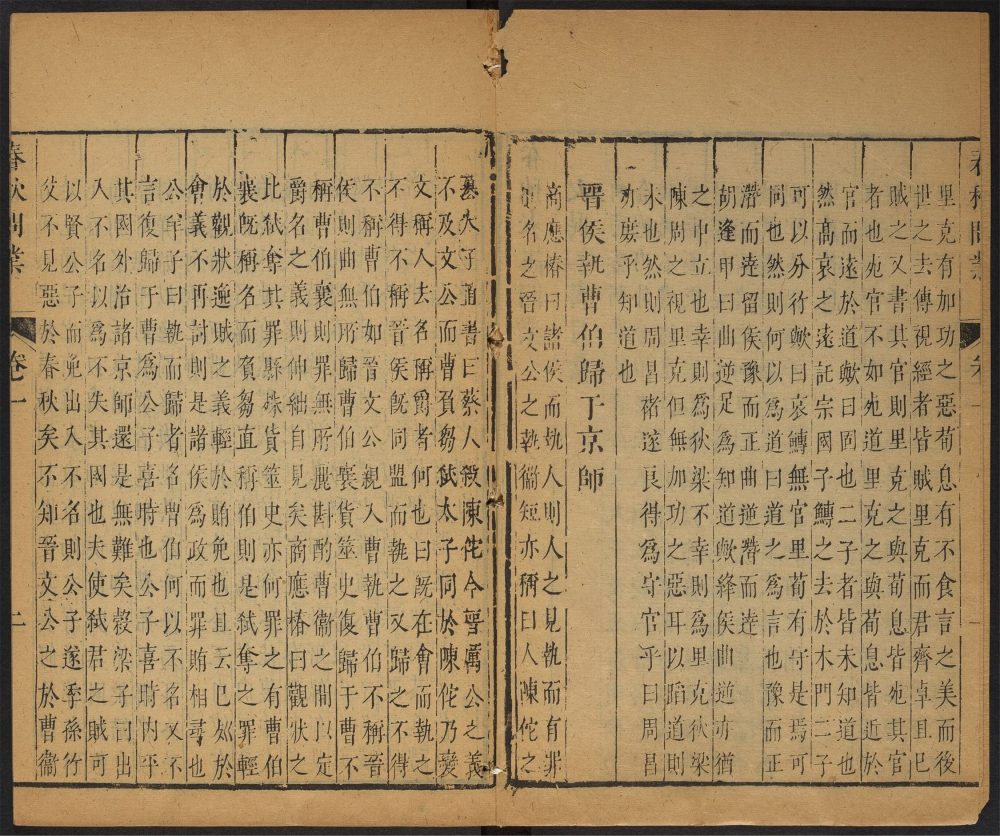 春秋問業
卷一
里克有加功之惡荀息有不食言之美而後
世之去傳視經者皆賊里克而君齊卓且已
賊之又書其官則里克之與荀息皆死其官
者也死官不如死道里克之與荀息皆近於
官而遠於道歟曰固也二子者皆未知道也
然髙哀之遠託宗國子鱄之去於木門二子
可以分行歟曰哀鱄無官里荀有守是焉可
同也然則何以為道曰道之為言也豫而正
濳而逹留侯豫而正曲逆濳而逹
胡逢甲曰曲逆足為知道歟絳侯曲逆亦猶
之中立也幸則為狄梁不幸則為里克狄梁
陳周之視里克但無加功之惡耳以蹈道則
未也然則周昌褚遂良得為守官乎曰周昌
幾乎知道也
晉侯執曹伯歸于京師
商應椿曰諸侯而執人則人之見執而有罪
則名之晉文公之執衞短亦稱曰人陳佗之
簒大子直書曰蔡人殺陳佗今晉厲公之義
不及文公而曹負芻弑太子同於陳佗乃變
文稱人去名稱爵者何也曰旣在會而執之
不得不稱晉侯旣同盟而執之又歸之不得
不稱曹伯如晉文公親入曹執曹伯不稱晉
侯則曲無所歸曹伯襄貨筮史復歸于曹不
稱曹伯襄則罪無所麗斟酌曹衞之間以定
爵名之義則伸絀自見矣商應椿曰觀狀之
比弑奪其罪縣殊貨筮史亦何罪之有曹伯
襄旣稱名而負芻直稱伯則是弑奪之罪輕
於觀狀逾賊之義輕於賄免也且云已列於
會義不再討則是諸侯為政而罪賄相尋也
公羊子曰執而歸者名曹伯何以不名又不
言復歸于曹為公子喜時也公子喜時内平
其國外治諸京師還是無難矣榖梁子曰出
入不名以為不失其國也夫使弑君之賊可
以賢公子而免出入不名則公子遂季孫行
父不見惡於春秋矣不知晉文公之於曹衞
春秋問業
卷一
二